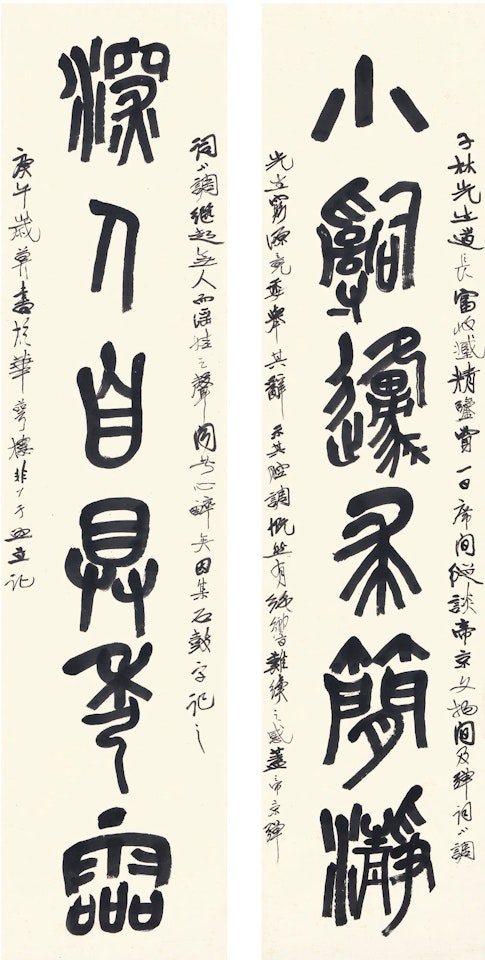 小辭邍柔簡瀞
子林先生道長富收藏精鑒賞一日席間縱談帝京文物間及彈詞小調
先生窮源竟委舉其辭示其腔調慨然有絕響難續之感蓋帝京彈
深人自異秀靈
詞小調繼起無人而淫哇之聲聞者心醉矣因集石鼓字記之
庚午歲莫書於華萼樓非厂于照並記